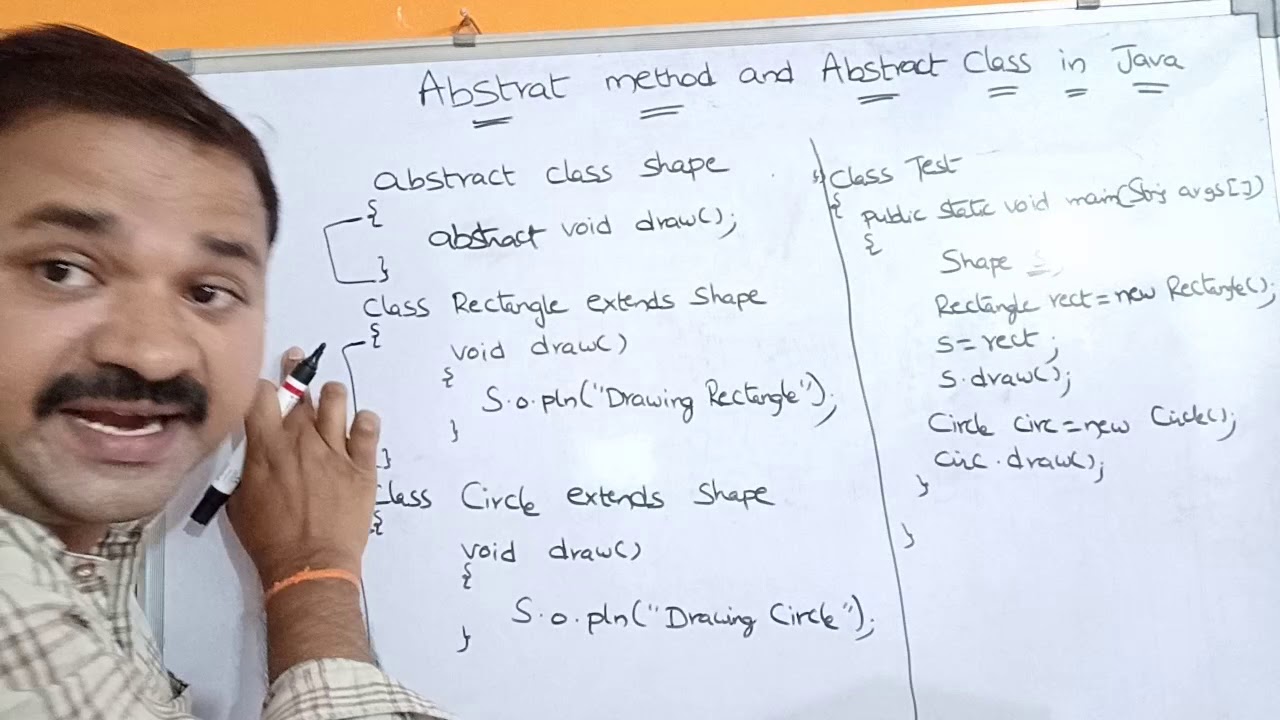 Abstrat method and Abstract Class in Java
abstract class shape
{
abstract void draw();
}
Class Rectangle extends Shape
{
void draw()
{
S.o.pln("Drawing Rectangle");
}
}
Class Circle extends Shape
{
void draw()
{
S.o.pln("Drawing Circle");
}
Class Test
{
public static void main( args[])
{
Shape s;
Rectangle rect=new Rectangle();
s=rect;
s.draw();
Circle circ=new Circle();
circ.draw();
}
}